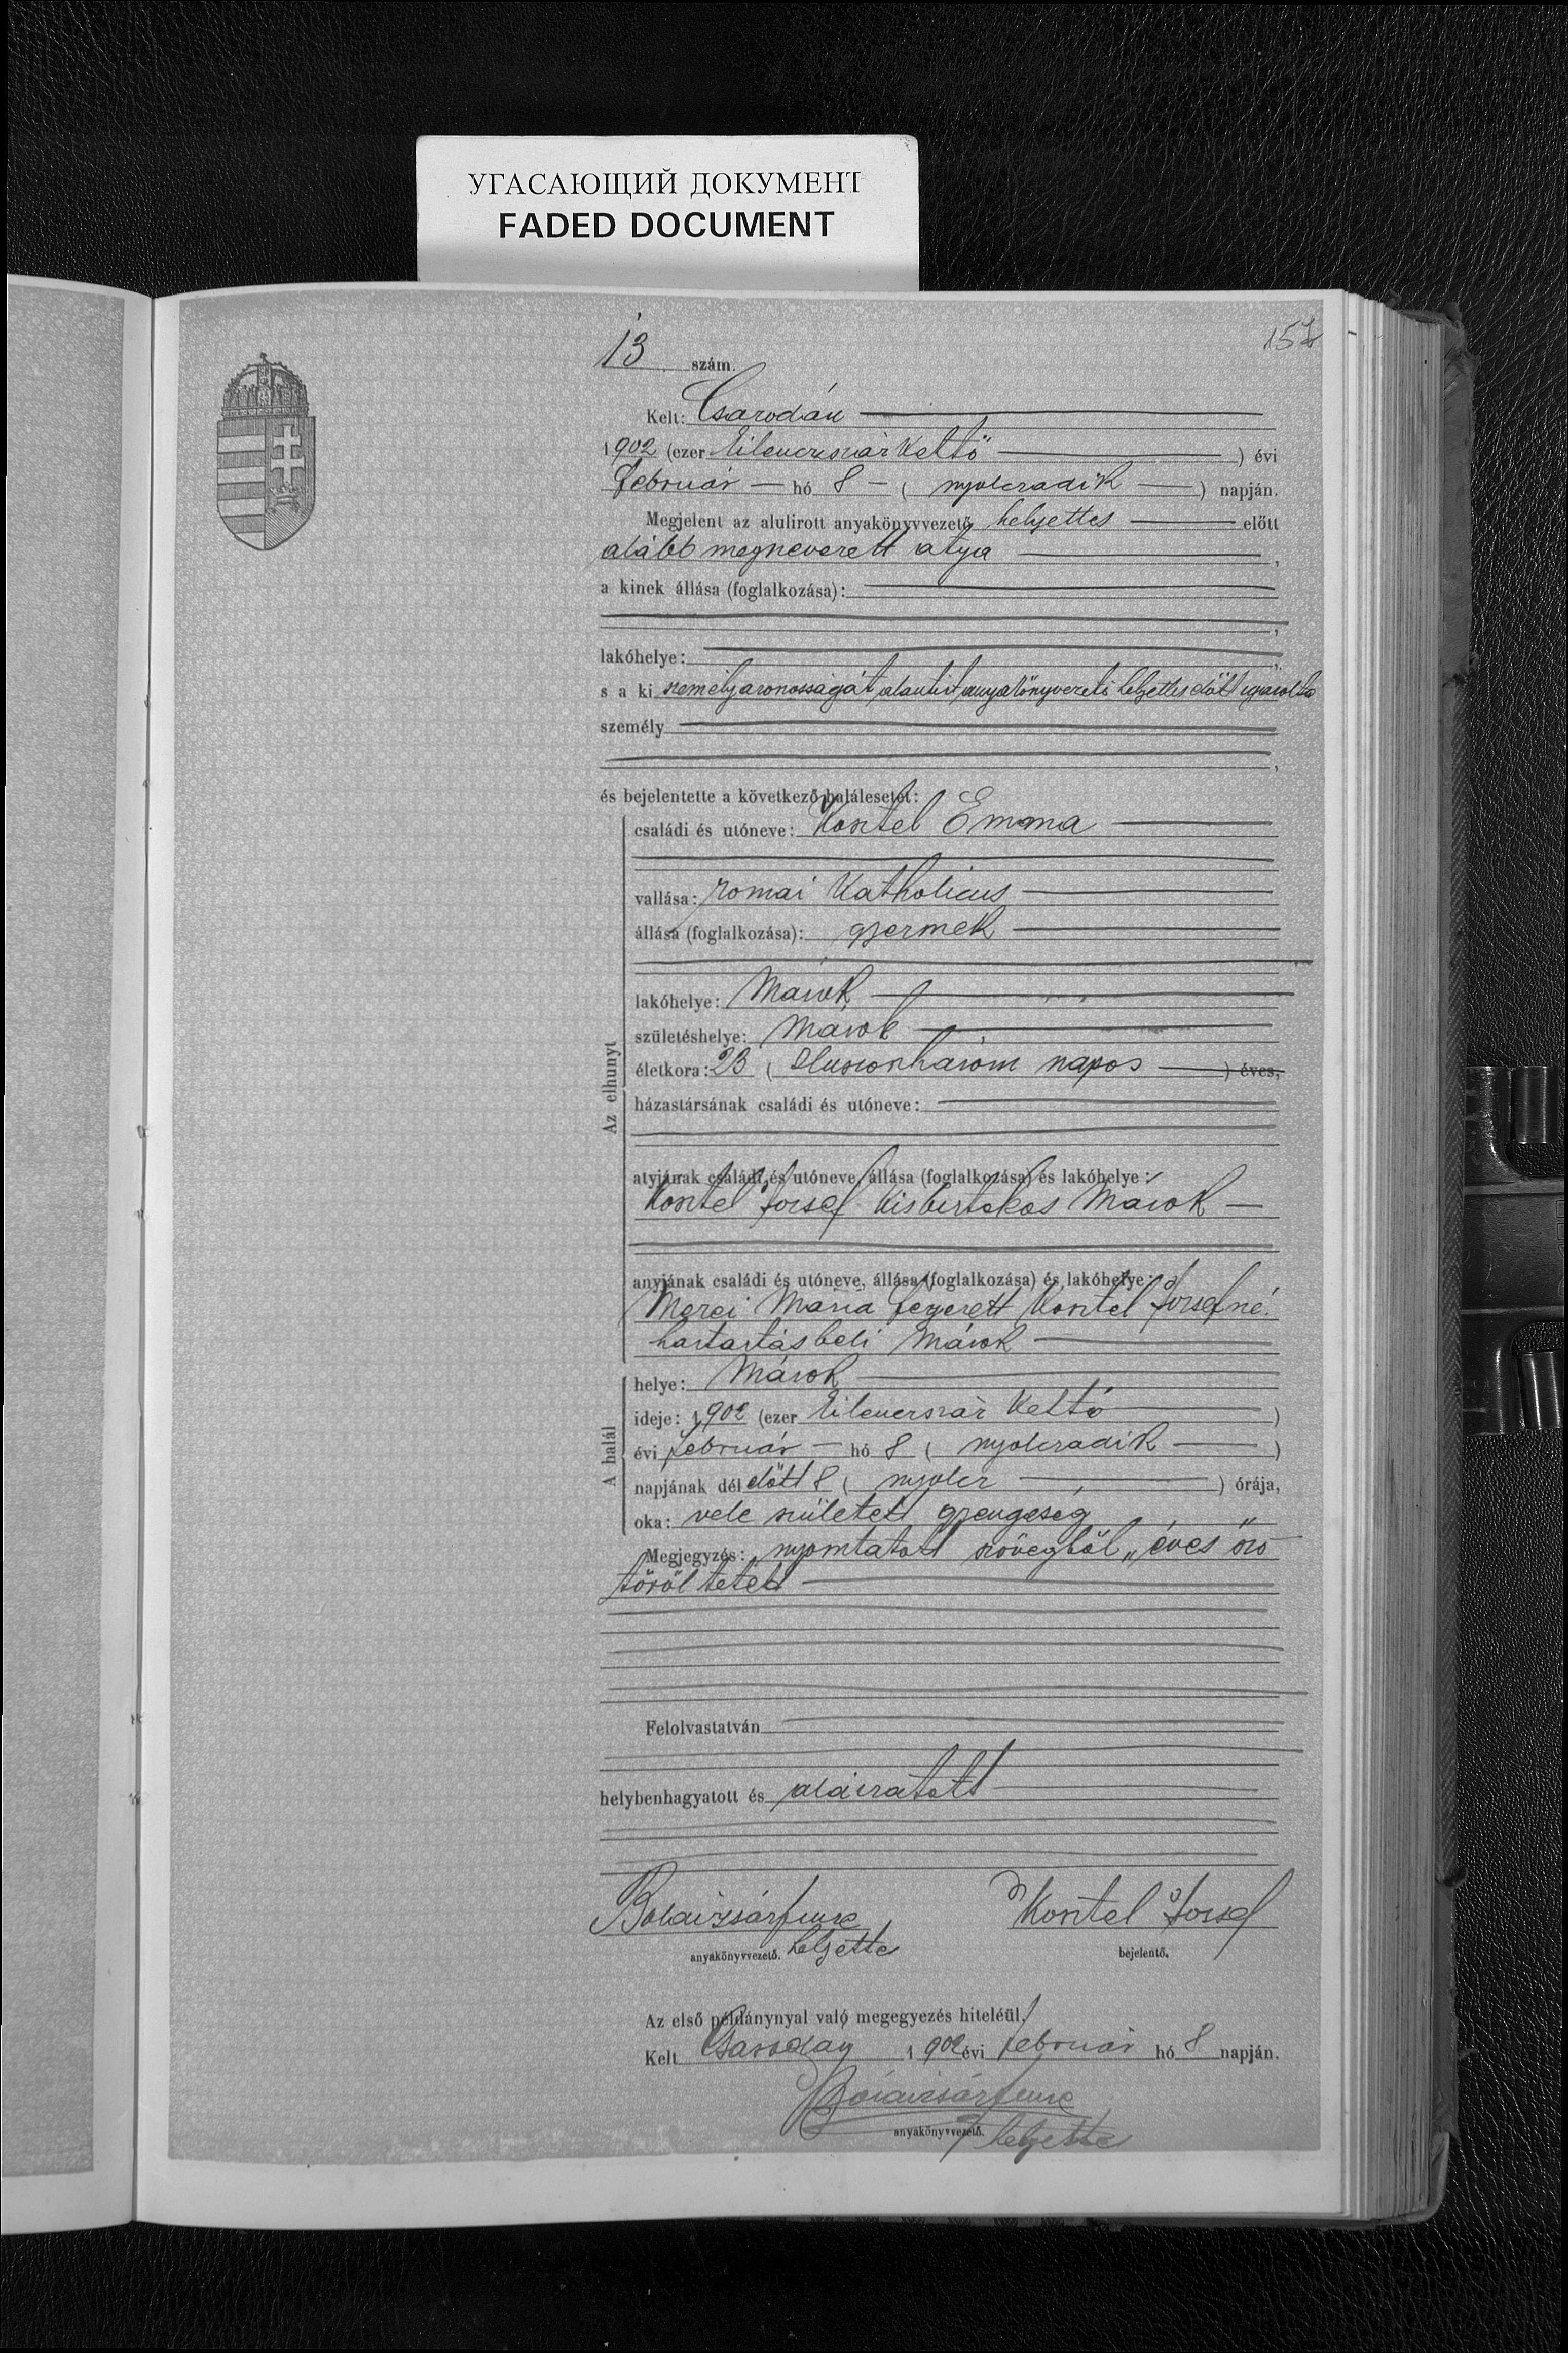 УГАСАЮЩИЙ ДОКУМЕНТ
FADED DOCUMENT
13 szám.
Kelt: Csarodán
1902 (ezer kilenczszáz kettő ) évi
február hó 8 ( nyolczadik ) napján.
Megjelent az alulirott anyakönyvvezető helyettes előtt
alább megnevezett atya ,
a kinek állása (foglalkozása):
,
lakóhelye: ,
s a ki személyazonosságát alantirt anyakönyvezető helyettes előtt igazolta
személy
,
és bejelentette a következő halálesetet:
Az elhunyt
családi és utóneve: Kosztel Emma
vallása: romai katholicus
állása (foglalkozása): gyermek
lakóhelye: Márok
születéshelye: Márok
életkora: 23 ( Huszonhárom napos ) éves,
házastársának családi és utóneve:
atyjának családi és utóneve, állása (foglalkozása) és lakóhelye:
Kosztel József kisbirtokos Márok
anyjának családi és utóneve, állása (foglalkozása) és lakóhelye:
Mária Kosztel Józsefné
háztartásbeli Márok
A halál
helye: Márok
ideje: 1902 (ezer kilenczszáz kettő )
évi február hó 8 ( nyolczadik )
napjának dél előtt 8 ( nyolcz ) órája,
oka: vele született gyengeség
Megjegyzés: nyomtatott szövegből „éves" szó
töröltetett
Felolvastatván
helybenhagyatott és aláiratott
Kosztel József
anyakönyvvezető. helyettes
bejelentő.
Az első példánynyal való megegyezés hiteléül.
Kelt Csarodán 1902 évi február hó 8 napján.
anyakönyvvezető.
helyettes